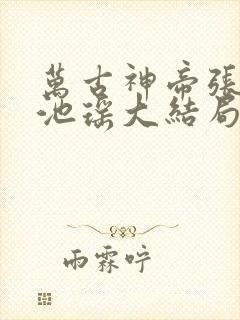 萬古神帝張
池瑤大結局
雨霖咛